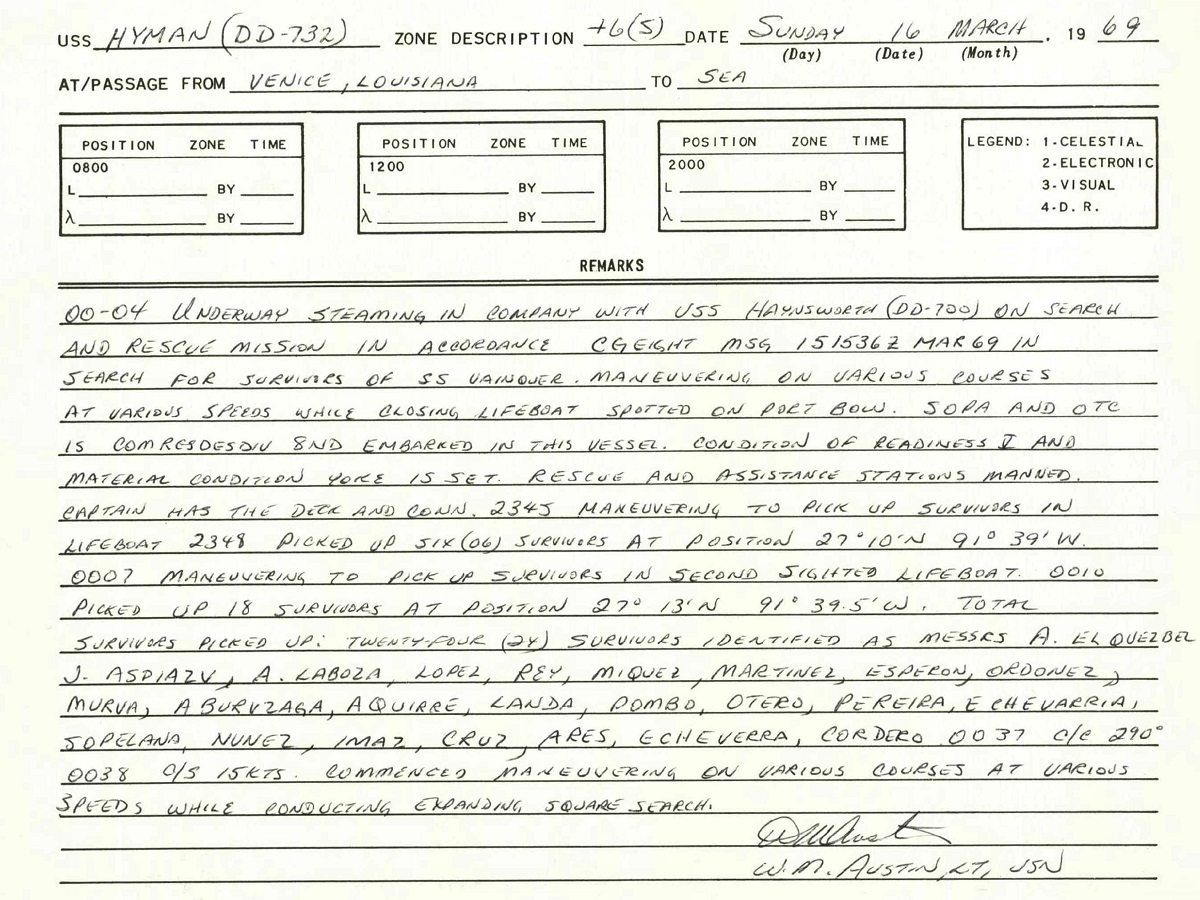 USS HYMAN (DD-732) ZONE DESCRIPTION +6(S) DATE SUNDAY 16 MARCH . 19 69
(Day) (Date) (Month)
AT/PASSAGE FROM VENICE, LOUISIANA TO SEA
POSITION ZONE TIME POSITION ZONE TIME POSITION ZONE TIME LEGEND: 1-CELESTIAL
0800 1200 2000 2-ELECTRONIC
L BY L BY L BY 3-VISUAL
λ BY λ BY λ BY 4-D. R.
REMARKS
00-04 UNDERWAY STEAMING IN COMPANY WITH USS HAYNSWORTH (DD-700) ON SEARCH
AND RESCUE MISSION IN ACCORDANCE CGEIGHT MSG 151536Z MAR 69 IN
SEARCH FOR SURVIVORS OF SS VAINQUER. MANEUVERING ON VARIOUS COURSES
AT VARIOUS SPEEDS WHILE CLOSING LIFEBOAT SPOTTED ON PORT BOW. SOPA AND OTC
IS COMRESDESDIV 8ND EMBARKED IN THIS VESSEL. CONDITION OF READINESS V AND
MATERIAL CONDITION YOKE IS SET. RESCUE AND ASSISTANCE STATIONS MANNED.
CAPTAIN HAS THE DECK AND CONN. 2345 MANEUVERING TO PICK UP SURVIVORS IN
LIFEBOAT 2348 PICKED UP SIX (06) SURVIVORS AT POSITION 27°10'N 91° 39'W.
0007 MANEUVERING TO PICK UP SURVIVORS IN SECOND SIGHTED LIFEBOAT. 0010
PICKED UP 18 SURVIVORS AT POSITION 27° 13'N 91° 39.5'W. TOTAL
SURVIVORS PICKED UP: TWENTY-FOUR (24) SURVIVORS IDENTIFIED AS MESSRS A. EL QUEZBEL
J. ASPIAZU, A. LABOZA, LOPEZ, REY, MIQUEZ, MARTINEZ, ESPERON, ORDONEZ,
MURUA, ABURUZAGA, AQUIRRE, LANDA, POMBO, OTERO, PEREIRA, ECHEVARRIA,
SOPELANA, NUNEZ, IMAZ, CRUZ, ARES, ECHEVERRA, CORDERO. 0037 C/C 290°
0038 C/S 15KTS. COMMENCED MANEUVERING ON VARIOUS COURSES AT VARIOUS
SPEEDS WHILE CONDUCTING EXPANDING SQUARE SEARCH.
W. M. AUSTIN, LT, USN